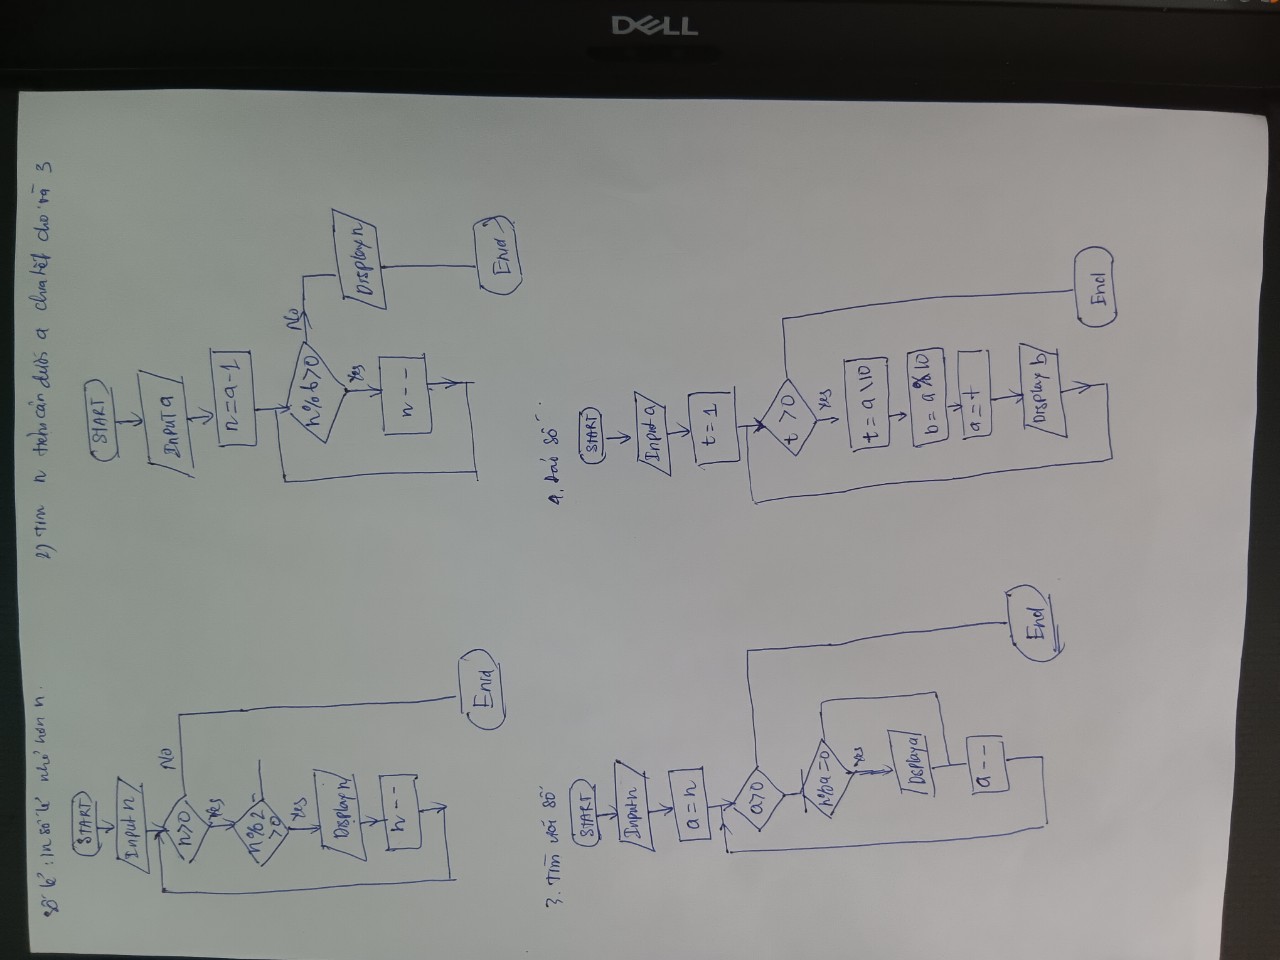 DELL
Số lẻ : In số lẻ nhỏ hơn n.
START
Input n
n>0
No
Yes
n%2
>0
Yes
Display n
n--
End
2) Tìm n tiền cận dưới a chia hết cho và 3
START
Input a
n=a-1
n%6>0
No
Yes
n--
Display n
End
3. Tìm ước số
START
Input n
a=n
a>0
n%a=0
Yes
Display a
a--
End
4. Đảo số.
START
Input a
t=1
t>0
Yes
t=a\10
b=a%10
a=t
Display b
End